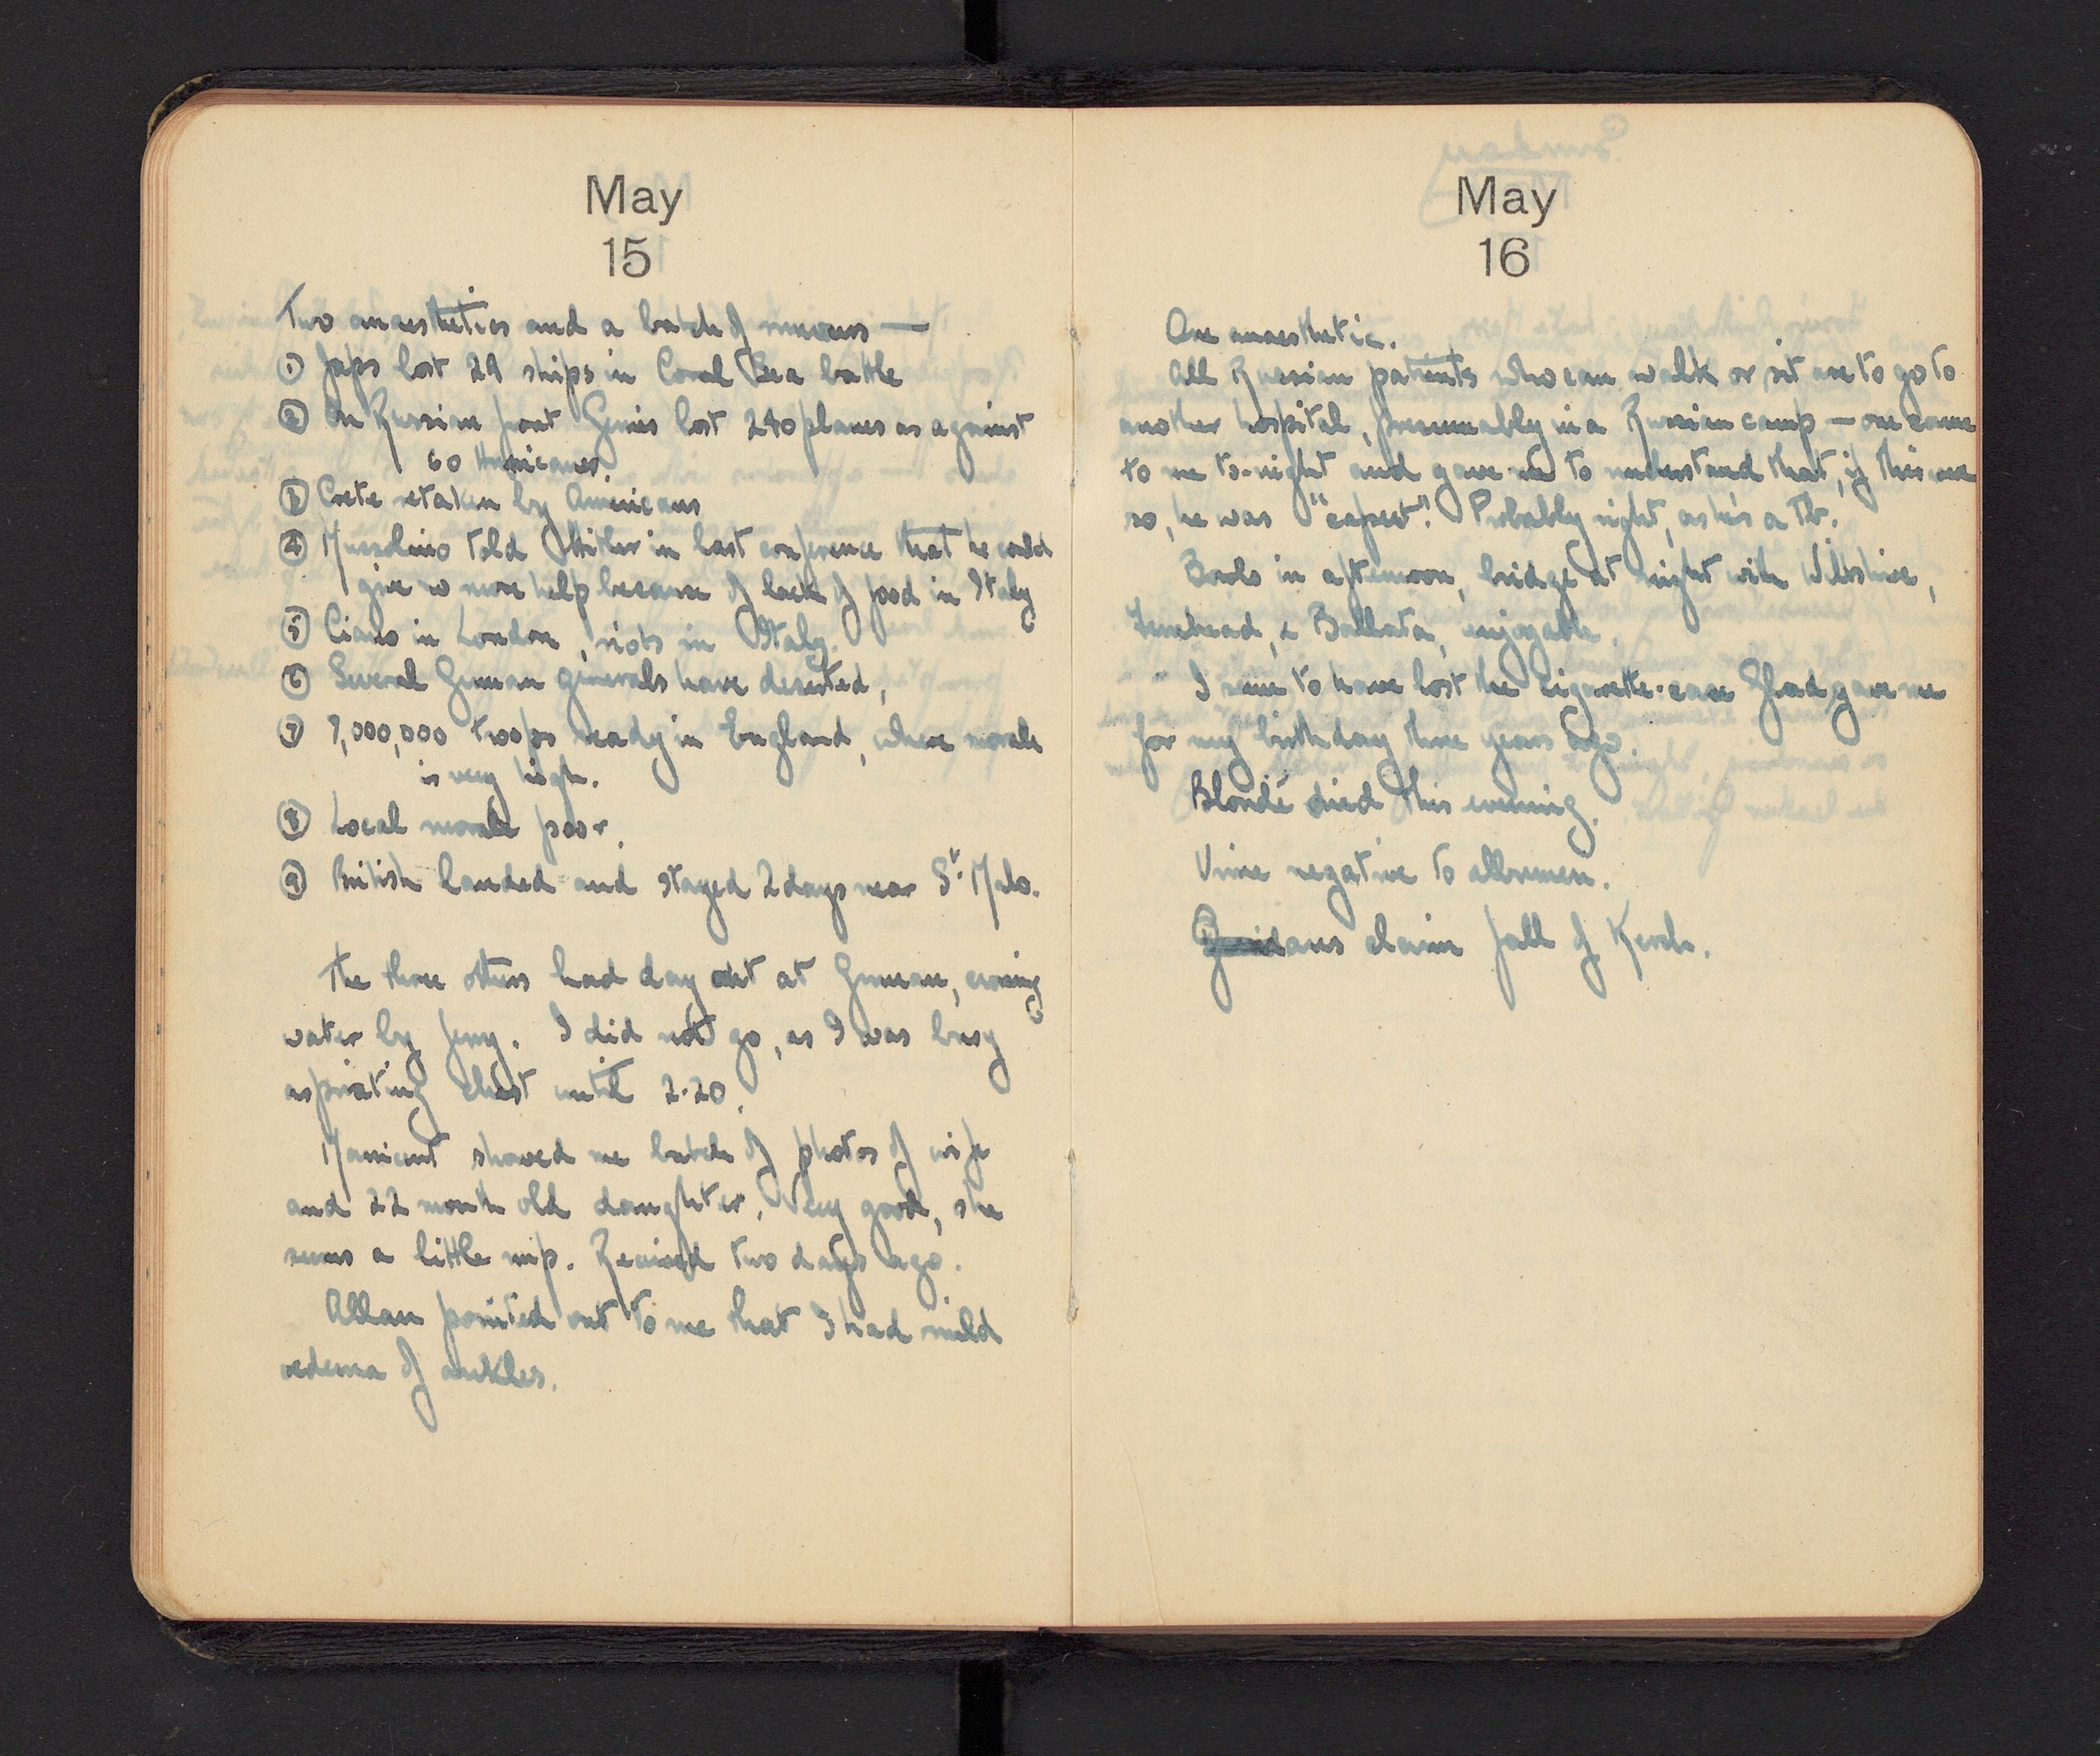 May
15
Two anaesthetics and a batch of rumours —
① Japs lost 29 ships in Coral Sea battle
② On Russian front Gerries lost 240 planes as against
60 Hurricanes.
③ Crete retaken by Americans
④ Mussolini told Hitler in last conference that he could
give no more help because of lack of food in Italy
⑤ Ciano in London, riots in Italy.
⑥ Several German generals have deserted,
⑦ 7,000,000 troops ready in England, where morale
is very high.
⑧ Local morale poor.
⑨ British landed and stayed 2 days near St. Malo.
The three others had day out at
water by ferry. I did not go, as I was busy
aspirating chest until 2.20.
showed me batch of photos of wife
and 22 month old daughter. Very good, she
seems a little nip. Received two days ago.
Allan pointed out to me that I had mild
oedema of ankles.
May
16
One anaesthetic.
All Russian patients who can walk or sit are to go to
another hospital, presumably in a Russian camp — one came
to me to-night and gave me to understand that, if this were
so, he was Probably right, as he's a Tb.
Bowls in afternoon, bridge at night with Wiltshire,
& enjoyable.
I seem to have lost the cigarette-case Glad gave me
for my birthday three years ago.
Blondé died this evening.
Urine negative to albumen.
claim fall of Kerch.